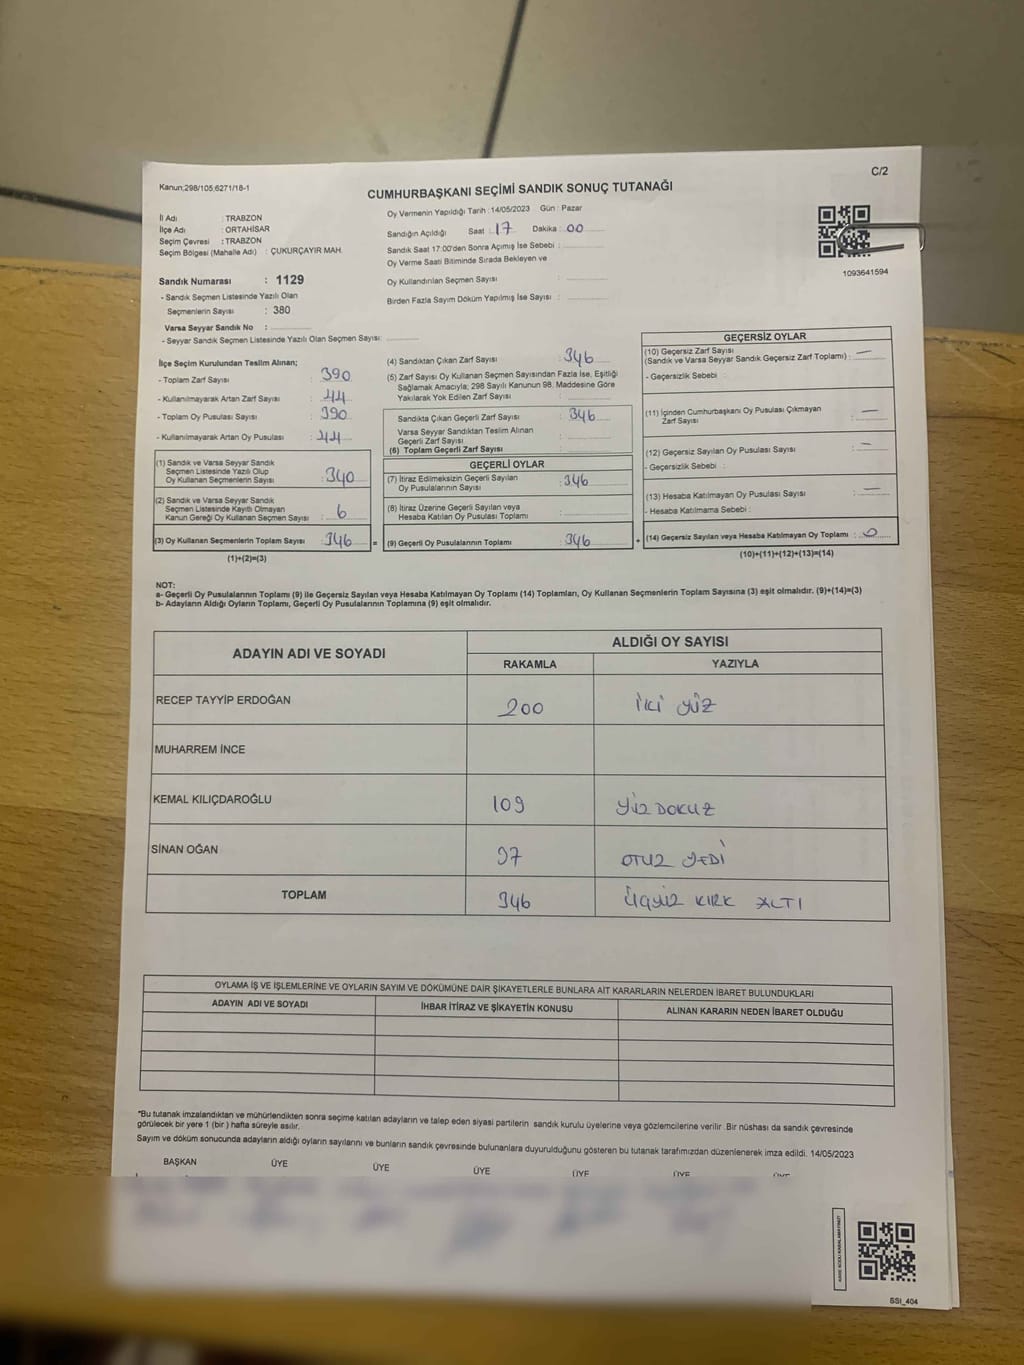 Kanun;298/105;6271/18-1
C/2
CUMHURBAŞKANI SEÇİMİ SANDIK SONUÇ TUTANAĞI
İl Adı : TRABZON
İlçe Adı : ORTAHİSAR
Seçim Çevresi : TRABZON
Seçim Bölgesi (Mahalle Adı) : ÇUKURÇAYIR MAH.
Sandık Numarası : 1129
- Sandık Seçmen Listesinde Yazılı Olan
Seçmenlerin Sayısı : 380
Varsa Seyyar Sandık No :
- Seyyar Sandık Seçmen Listesinde Yazılı Olan Seçmen Sayısı:
Oy Vermenin Yapıldığı Tarih : 14/05/2023 Gün : Pazar
Sandığın Açıldığı Saat : 17 Dakika : 00
Sandık Saat 17:00'den Sonra Açımış İse Sebebi :
Oy Verme Saati Bitiminde Sırada Bekleyen ve
Oy Kullandırılan Seçmen Sayısı :
Birden Fazla Sayım Döküm Yapılmış İse Sayısı :
1093641594
İlçe Seçim Kurulundan Teslim Alınan;
- Toplam Zarf Sayısı : 390
- Kullanılmayarak Artan Zarf Sayısı : 44
- Toplam Oy Pusulası Sayısı : 390
- Kullanılmayarak Artan Oy Pusulası : 44
(1) Sandık ve Varsa Seyyar Sandık
Seçmen Listesinde Yazılı Olup
Oy Kullanan Seçmenlerin Sayısı : 340
(2) Sandık ve Varsa Seyyar Sandık
Seçmen Listesinde Kayıtlı Olmayan
Kanun Gereği Oy Kullanan Seçmen Sayısı : 6
(3) Oy Kullanan Seçmenlerin Toplam Sayısı : 346 =
(1)+(2)=(3)
(4) Sandıktan Çıkan Zarf Sayısı : 346
(5) Zarf Sayısı Oy Kullanan Seçmen Sayısından Fazla İse, Eşitliği
Sağlamak Amacıyla; 298 Sayılı Kanunun 98. Maddesine Göre
Yakılarak Yok Edilen Zarf Sayısı :
Sandıkta Çıkan Geçerli Zarf Sayısı : 346
Varsa Seyyar Sandıktan Teslim Alınan
Geçerli Zarf Sayısı :
(6) Toplam Geçerli Zarf Sayısı :
GEÇERLİ OYLAR
(7) İtiraz Edilmeksizin Geçerli Sayılan
Oy Pusulalarının Sayısı : 346
(8) İtiraz Üzerine Geçerli Sayılan veya
Hesaba Katılan Oy Pusulası Toplamı :
(9) Geçerli Oy Pusulalarının Toplamı : 346 +
GEÇERSİZ OYLAR
(10) Geçersiz Zarf Sayısı
(Sandık ve Varsa Seyyar Sandık Geçersiz Zarf Toplamı) : —
- Geçersizlik Sebebi :
(11) İçinden Cumhurbaşkanı Oy Pusulası Çıkmayan
Zarf Sayısı : —
(12) Geçersiz Sayılan Oy Pusulası Sayısı : —
- Geçersizlik Sebebi :
(13) Hesaba Katılmayan Oy Pusulası Sayısı : —
- Hesaba Katılmama Sebebi :
(14) Geçersiz Sayılan veya Hesaba Katılmayan Oy Toplamı : 0
(10)+(11)+(12)+(13)=(14)
NOT:
a- Geçerli Oy Pusulalarının Toplamı (9) ile Geçersiz Sayılan veya Hesaba Katılmayan Oy Toplamı (14) Toplamları, Oy Kullanan Seçmenlerin Toplam Sayısına (3) eşit olmalıdır. (9)+(14)=(3)
b- Adayların Aldığı Oyların Toplamı, Geçerli Oy Pusulalarının Toplamına (9) eşit olmalıdır.
ADAYIN ADI VE SOYADI ALDIĞI OY SAYISI
RAKAMLA YAZIYLA
RECEP TAYYİP ERDOĞAN 200 İKİ YÜZ
MUHARREM İNCE
KEMAL KILIÇDAROĞLU 109 YÜZ DOKUZ
SİNAN OĞAN 37 OTUZ YEDİ
TOPLAM 346 ÜÇYÜZ KIRK ALTI
OYLAMA İŞ VE İŞLEMLERİNE VE OYLARIN SAYIM VE DÖKÜMÜNE DAİR ŞİKAYETLERLE BUNLARA AİT KARARLARIN NELERDEN İBARET BULUNDUKLARI
ADAYIN ADI VE SOYADI İHBAR İTİRAZ VE ŞİKAYETİN KONUSU ALINAN KARARIN NEDEN İBARET OLDUĞU
*Bu tutanak imzalandıktan ve mühürlendikten sonra seçime katılan adayların ve talep eden siyasi partilerin sandık kurulu üyelerine veya gözlemcilerine verilir .Bir nüshası da sandık çevresinde
görülecek bir yere 1 (bir ) hafta süreyle asılır.
Sayım ve döküm sonucunda adayların aldığı oyların sayılarını ve bunların sandık çevresinde bulunanlara duyurulduğunu gösteren bu tutanak tarafımızdan düzenlenerek imza edildi. 14/05/2023
BAŞKAN ÜYE ÜYE ÜYE ÜYE ÜYE ÜYE
SSI_404